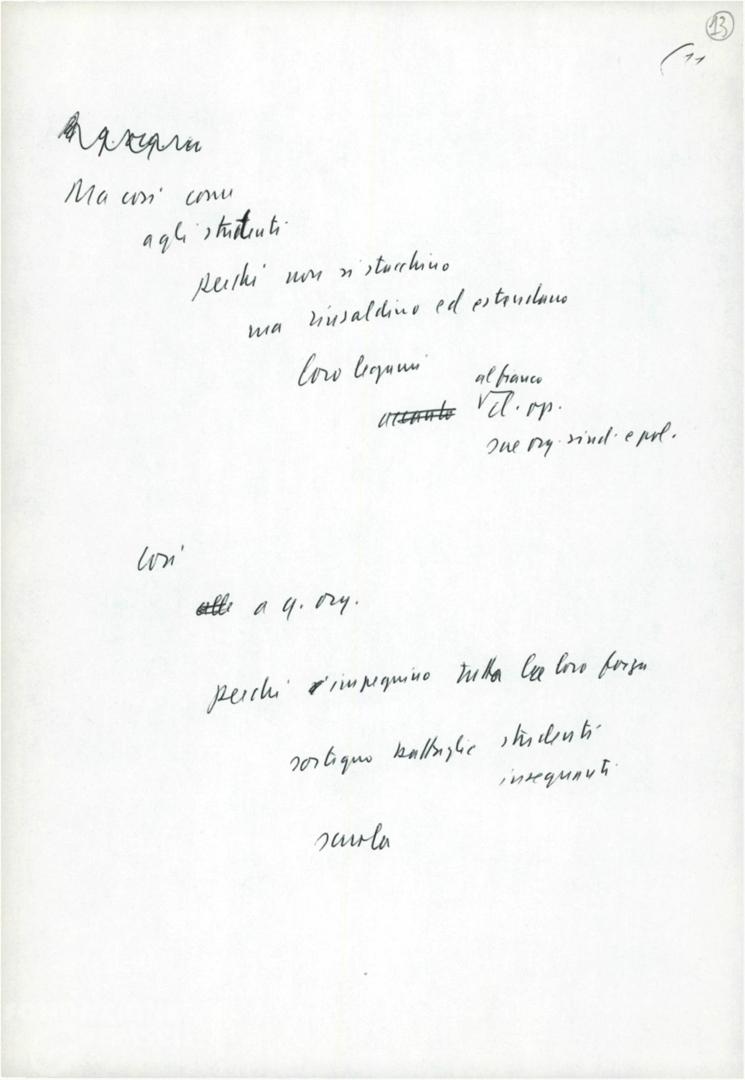 13
11
Ma così come
agli studenti
perché non si stacchino
ma rinsaldino ed estendano
loro legami
al franco
accanto cl. op.
sue org. sind. e pol.
Così
alle a q. org.
perché s'impegnino tutta la loro forza
sostegno battaglie studenti
insegnanti
scuola